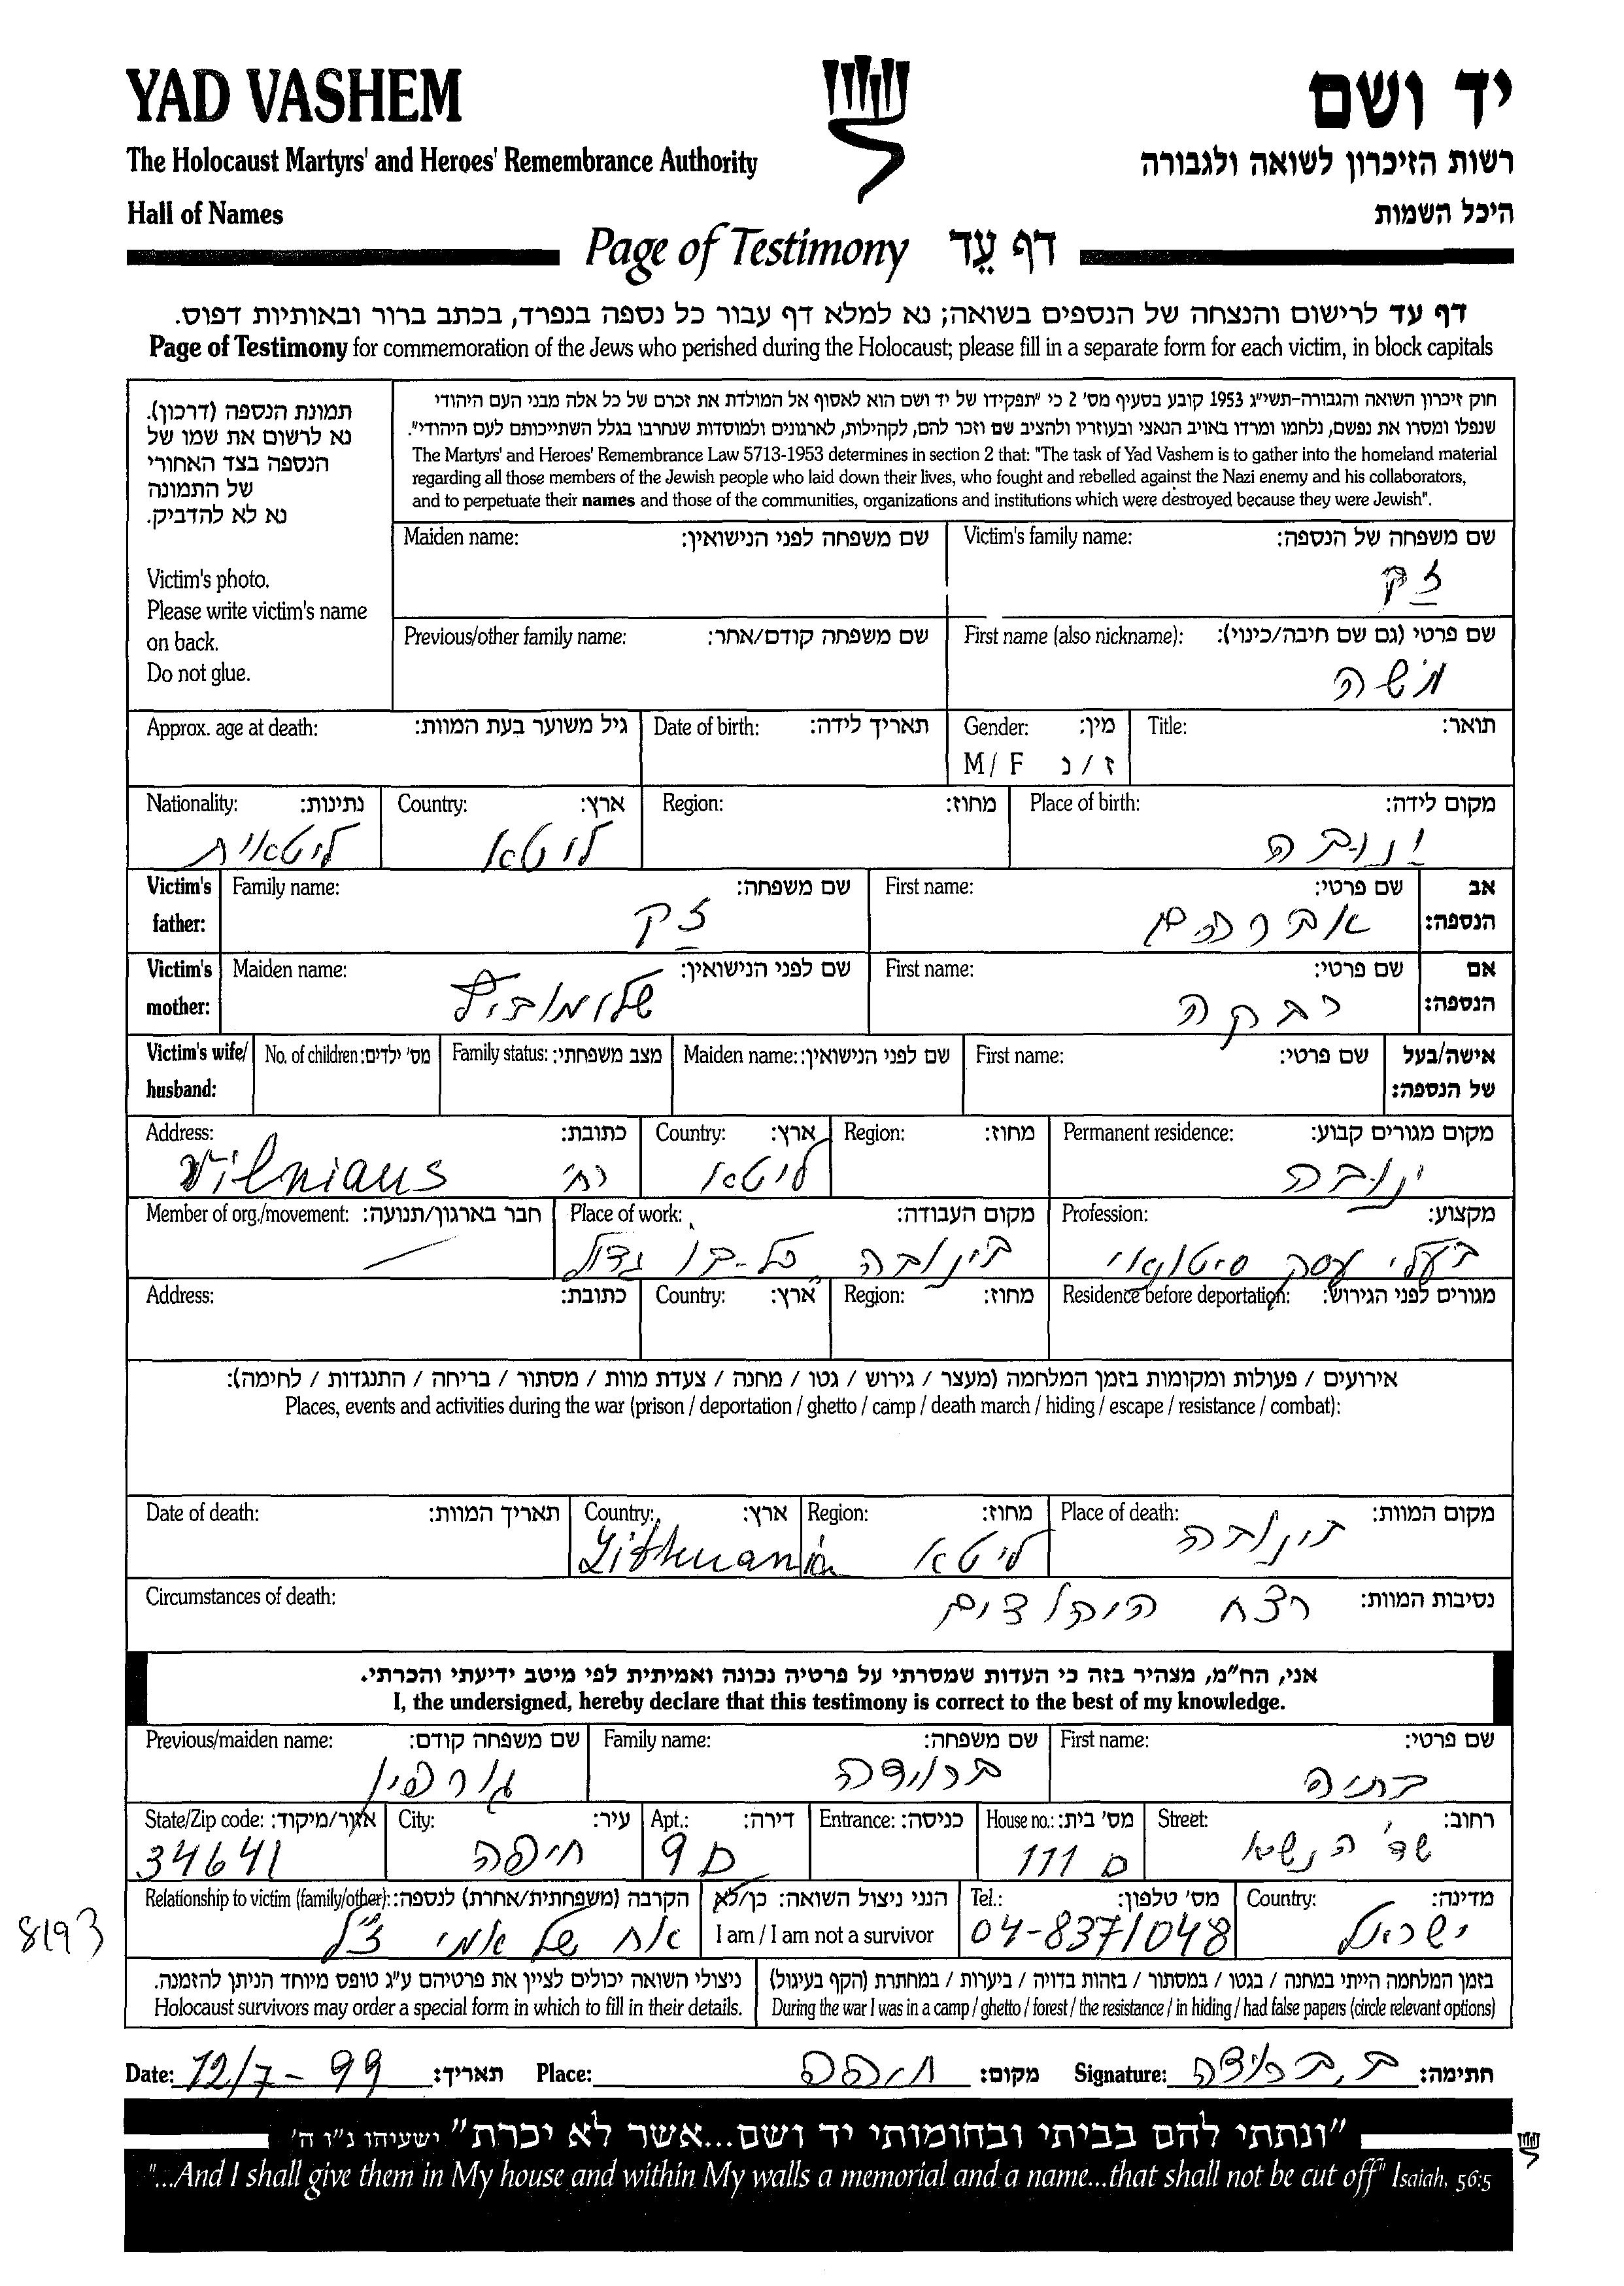 YAD VASHEM
יד ושם
The Holocaust Martyrs' and Heroes' Remembrance Authority
רשות הזיכרון לשואה ולגבורה
Hall of Names
היכל השמות
Page of Testimony דף עֵד
דף עד לרישום והנצחה של הנספים בשואה; נא למלא דף עבור כל נספה בנפרד, בכתב ברור ובאותיות דפוס.
Page of Testimony for commemoration of the Jews who perished during the Holocaust; please fill in a separate form for each victim, in block capitals
תמונת הנספה (דרכון).
נא לרשום את שמו של
הנספה בצד האחורי
של התמונה
נא לא להדביק.
Victim's photo.
Please write victim's name
on back.
Do not glue.
חוק זיכרון השואה והגבורה-תשי"ג 1953 קובע בסעיף מס' 2 כי "תפקידו של יד ושם הוא לאסוף אל המולדת את זכרם של כל אלה מבני העם היהודי
שנפלו ומסרו את נפשם, נלחמו ומרדו באויב הנאצי ובעוזריו ולהציב שם וזכר להם, לקהילות, לארגונים ולמוסדות שנחרבו בגלל השתייכותם לעם היהודי".
The Martyrs' and Heroes' Remembrance Law 5713-1953 determines in section 2 that: "The task of Yad Vashem is to gather into the homeland material
regarding all those members of the Jewish people who laid down their lives, who fought and rebelled against the Nazi enemy and his collaborators,
and to perpetuate their names and those of the communities, organizations and institutions which were destroyed because they were Jewish".
Maiden name: שם משפחה לפני הנישואין: Victim's family name: שם משפחה של הנספה:
זק
Previous/other family name: שם משפחה קודם/אחר: First name (also nickname): שם פרטי (גם שם חיבה/כינוי):
משה
Approx. age at death: גיל משוער בעת המוות: Date of birth: תאריך לידה: Gender: מין: Title: תואר:
M / F ז / נ
Nationality: נתינות: Country: ארץ: Region: מחוז: Place of birth: מקום לידה:
ליטאית ליטא ינובה
Victim's father: Family name: שם משפחה: First name: שם פרטי: אב הנספה:
זק אברהם
Victim's mother: Maiden name: שם לפני הנישואין: First name: שם פרטי: אם הנספה:
שלומוביץ רבקה
Victim's wife/ husband: No. of children: מס' ילדים: Family status: מצב משפחתי: Maiden name: שם לפני הנישואין: First name: שם פרטי: אישה/בעל של הנספה:
Address: כתובת: Country: ארץ: Region: מחוז: Permanent residence: מקום מגורים קבוע:
Vilniaus רח' ליטא ינובה
Member of org./movement: חבר בארגון/תנועה: Place of work: מקום העבודה: Profession: מקצוע:
בינובה כל-בו גדול בעלי עסק סיטונאי
Address: כתובת: Country: ארץ: Region: מחוז: Residence before deportation: מגורים לפני הגירוש:
אירועים / פעולות ומקומות בזמן המלחמה (מעצר / גירוש / גטו / מחנה / צעדת מוות / מסתור / בריחה / התנגדות / לחימה):
Places, events and activities during the war (prison / deportation / ghetto / camp / death march / hiding / escape / resistance / combat):
Date of death: תאריך המוות: Country: ארץ: Region: מחוז: Place of death: מקום המוות:
Lithuania ליטא בינובה
Circumstances of death: נסיבות המוות:
רצח היהודים
אני, הח"מ, מצהיר בזה כי העדות שמסרתי על פרטיה נכונה ואמיתית לפי מיטב ידיעתי והכרתי.
I, the undersigned, hereby declare that this testimony is correct to the best of my knowledge.
Previous/maiden name: שם משפחה קודם: Family name: שם משפחה: First name: שם פרטי:
גורפין ברוידה בתיה
State/Zip code: אזור/מיקוד: City: עיר: Apt.: דירה: Entrance: כניסה: House no.: מס' בית: Street: רחוב:
34641 חיפה 9 111 שד' הנשיא
Relationship to victim (family/other): הקרבה (משפחתית/אחרת) לנספה: הנני ניצול השואה: כן/לא Tel.: מס' טלפון: Country: מדינה:
אח של אמי ז"ל I am / I am not a survivor 04-8371048 ישראל
8193
ניצולי השואה יכולים לציין את פרטיהם ע"ג טופס מיוחד הניתן להזמנה. בזמן המלחמה הייתי במחנה / בגטו / במסתור / בזהות בדויה / ביערות / במחתרת (הקף בעיגול)
Holocaust survivors may order a special form in which to fill in their details. During the war I was in a camp / ghetto / forest / the resistance / in hiding / had false papers (circle relevant options)
Date: 12/7-99 תאריך: Place: חיפה מקום: Signature: ב. ברוידה חתימה:
"ונתתי להם בביתי ובחומותי יד ושם...אשר לא יכרת" ישעיהו נ"ו ה'
"...And I shall give them in My house and within My walls a memorial and a name...that shall not be cut off" Isaiah, 56:5